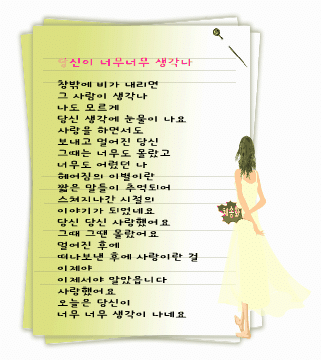 당신이 너무너무 생각나
창밖에 비가 내리면
그 사람이 생각나
나도 모르게
당신 생각에 눈물이 나요
사랑을 하면서도
보내고 멀어진 당신
그때는 너무도 몰랐고
너무도 어렸던 나
헤어짐의 이별이란
짧은 말들이 추억되어
스쳐지나간 시절의
이야기가 되었네요
당신 당신 사랑했어요
그때 그땐 몰랐어요
멀어진 후에
떠나보낸 후에 사랑이란 걸
이제야
이제서야 알았읍니다
사랑했어요
오늘은 당신이
너무 너무 생각이 나네요